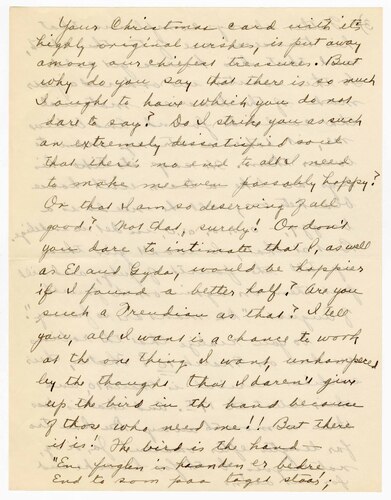 Your Christmas card with its
highly original wishes, is put away
among our chiefest treasures. But
why do you say that there is so much
I ought to have which you do not
dare to say? Do I strike you as such
an extremely dissatisfied soul
that there's no end to all I need
to make me even passably happy?
Or that I am so deserving of all
good? Not that, surely! Or don't
you dare to intimate that I, as well
as El and Gyda, would be happier
if I found a better half? Are you
such a Freudian as that? I tell
you, all I want is a chance to work
at the one thing I want, unhampered
by the thought that I daren't give
up the bird in the hand because
of those who need me!! But there
it is! The bird is the hand -
"En fuglen i haanden er bedre
End to som paa taget staar;